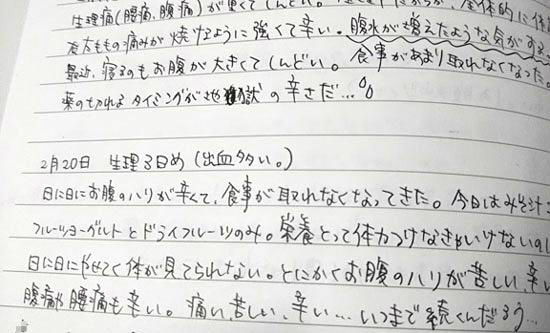 生理痛(腰痛、腹痛)が重くてしんどい。
左太ももの痛みが焼けるように強くて辛い。腹水が増えたような気がする
最近、寝るのもお腹が大きくてしんどい。食事があまり取れなくなった。
薬のきれるタイミングが地獄の辛さだ…。
2月20日 生理3日め(出血多い。)
日に日にお腹のハリが辛くて、食事が取れなくなってきた。今日はみそ汁
フルーツヨーグルトとドライフルーツのみ。栄養とって体力つけなきゃいけないのに
日に日にやせてく体が見てられない。とにかくお腹のハリが苦しい、辛い
腹痛や腰痛も辛い。痛い、苦しい、辛い…いつまで続くんだろう…